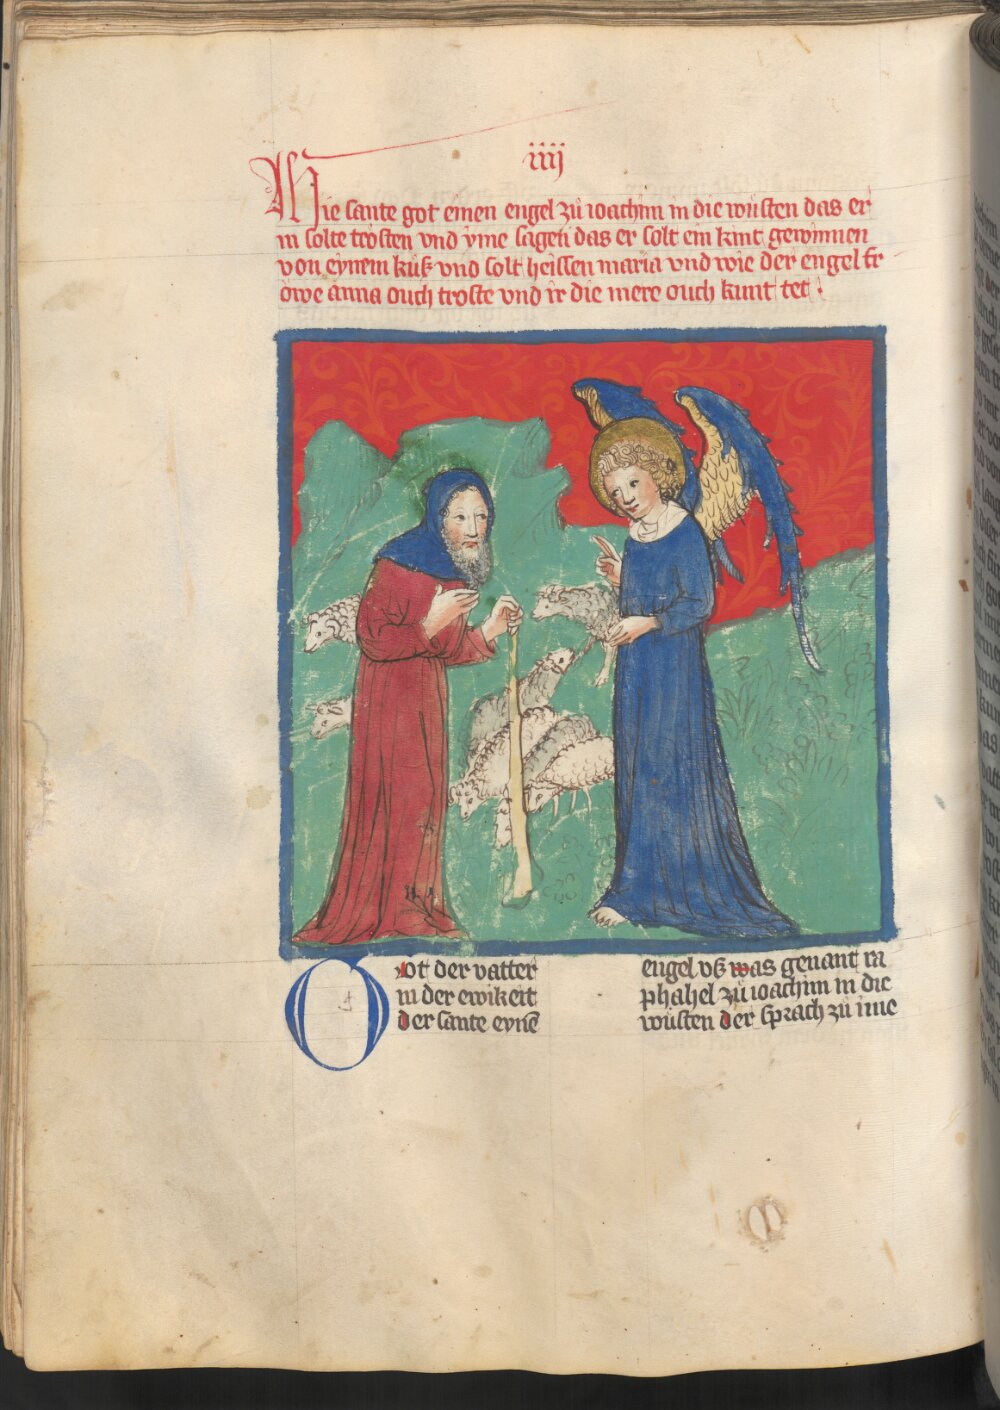 iiij
Wie sante got einen engel zů ioachim in die wůsten das er
in solte trösten vnd yme sagen das er solt ein kint gewinnen
von eynem kuß vnd solt heissen maria vnd wie der engel fr
öwe anna ouch troste vnd ir die mere ouch kunt tet
Got der vatter
in der ewikeit
der sante eynē
engel vß was genant ra
phahel zů ioachim in die
wůsten der sprach zů ime